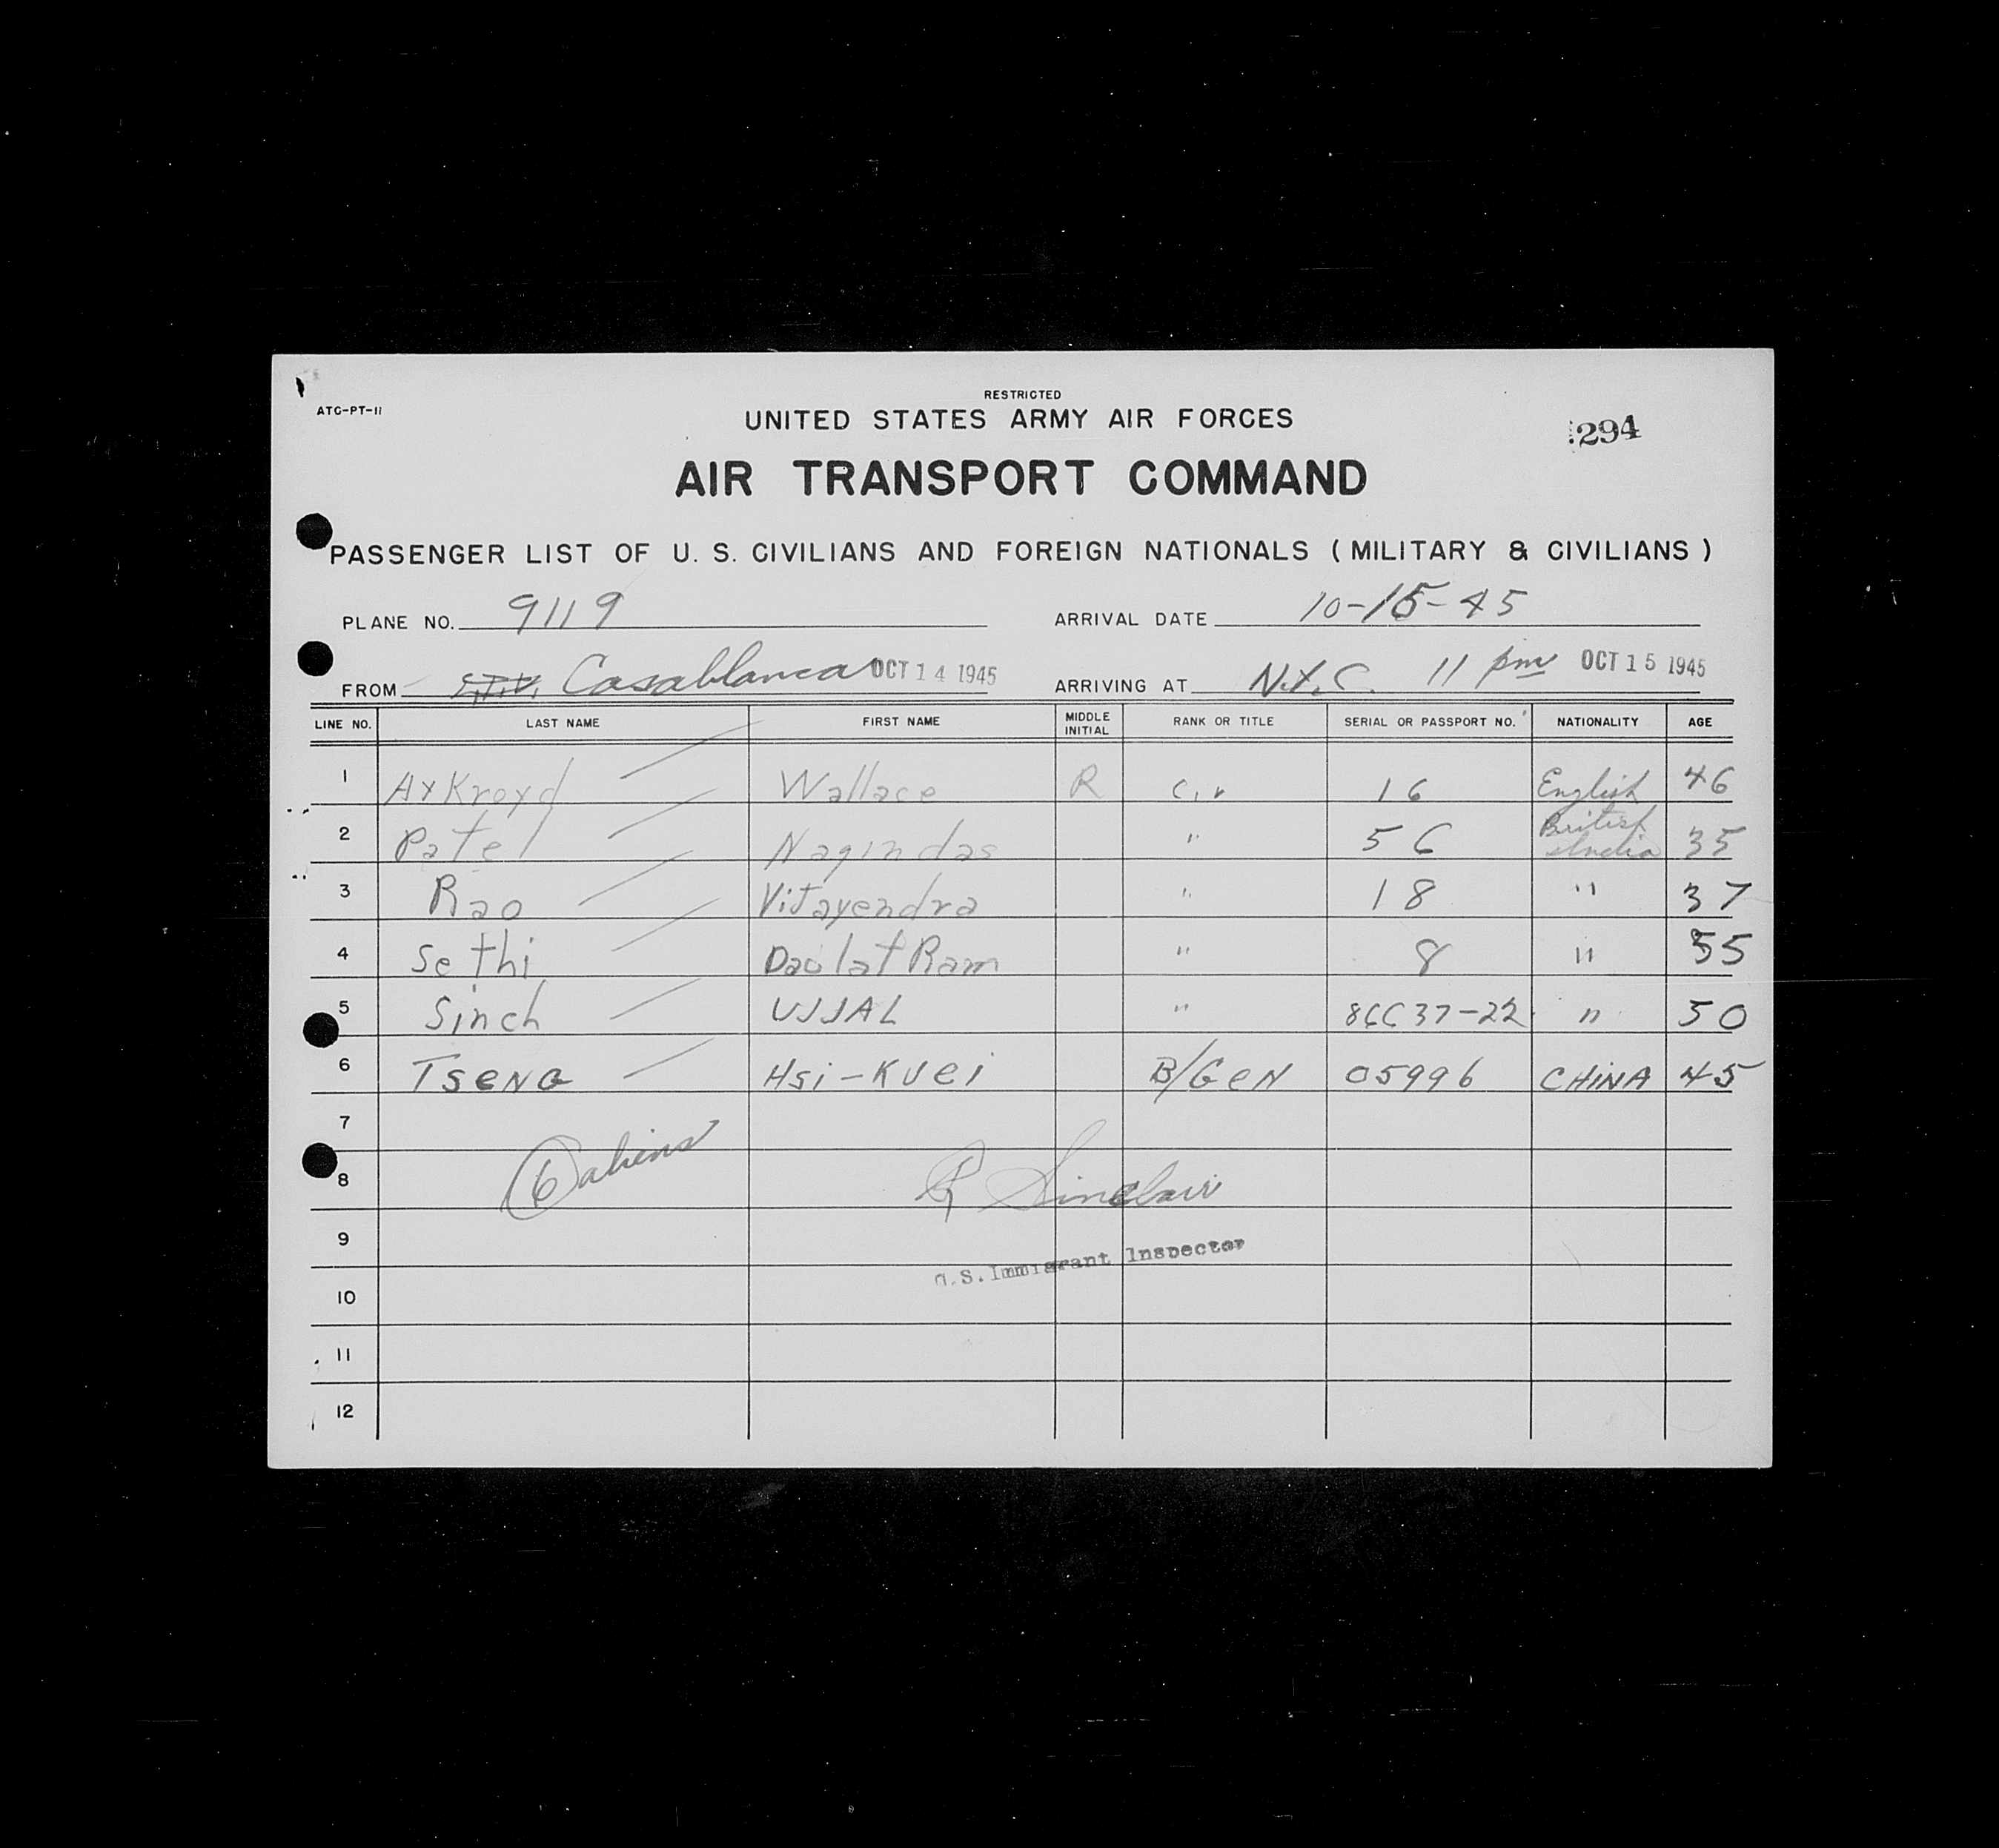 RESTRICTED
ATC-PT-11
UNITED STATES ARMY AIR FORCES
294
AIR TRANSPORT COMMAND
PASSENGER LIST OF U. S. CIVILIANS AND FOREIGN NATIONALS ( MILITARY & CIVILIANS )
PLANE NO. 9119 ARRIVAL DATE 10-15-45
FROM Casablanca OCT 14 1945 ARRIVING AT N.Y.C. 11 pm OCT 15 1945
LINE NO. LAST NAME FIRST NAME MIDDLE INITIAL RANK OR TITLE SERIAL OR PASSPORT NO. NATIONALITY AGE
1 AyKroyd Wallace R Civ 16 English 46
2 Patel Nagindas " 56 British India 35
3 Rao Vijayendra " 18 " 37
4 Sethi Daulat Ram " 8 " 55
5 Sinch UJJAL " 8CC37-22 " 50
6 TSeNG Hsi-KUei B/GeN 05996 CHINA 45
7
8 (6) aliens R Sinclair
9 U.S. Immigrant Inspector
10
11
12